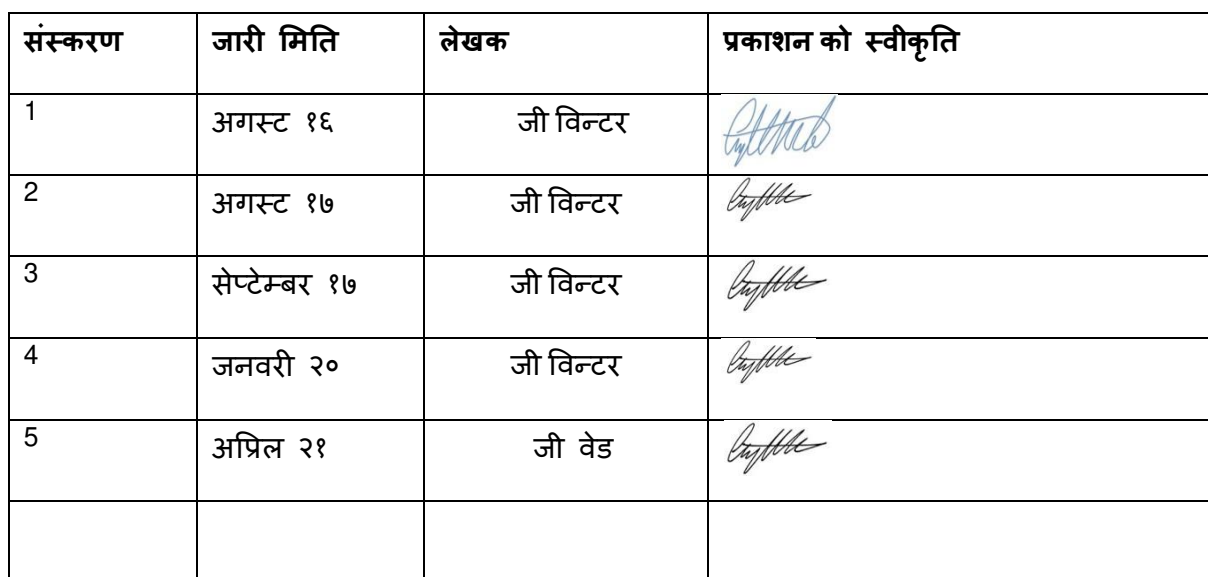 संस्करण जारी मिति लेखक प्रकाशन को स्वीकृति
1 अगस्ट १६ जी विन्टर
2 अगस्ट १७ जी विन्टर
3 सेप्टेम्बर १७ जी विन्टर
4 जनवरी २० जी विन्टर
5 अप्रिल २१ जी वेड